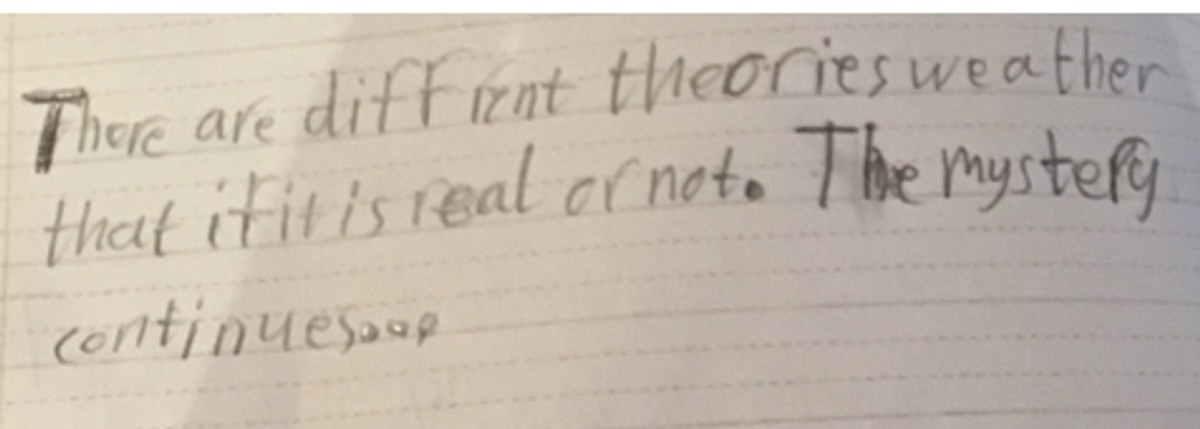 There are diffrent theories weather
that if it is real or not. The mystery
continues...